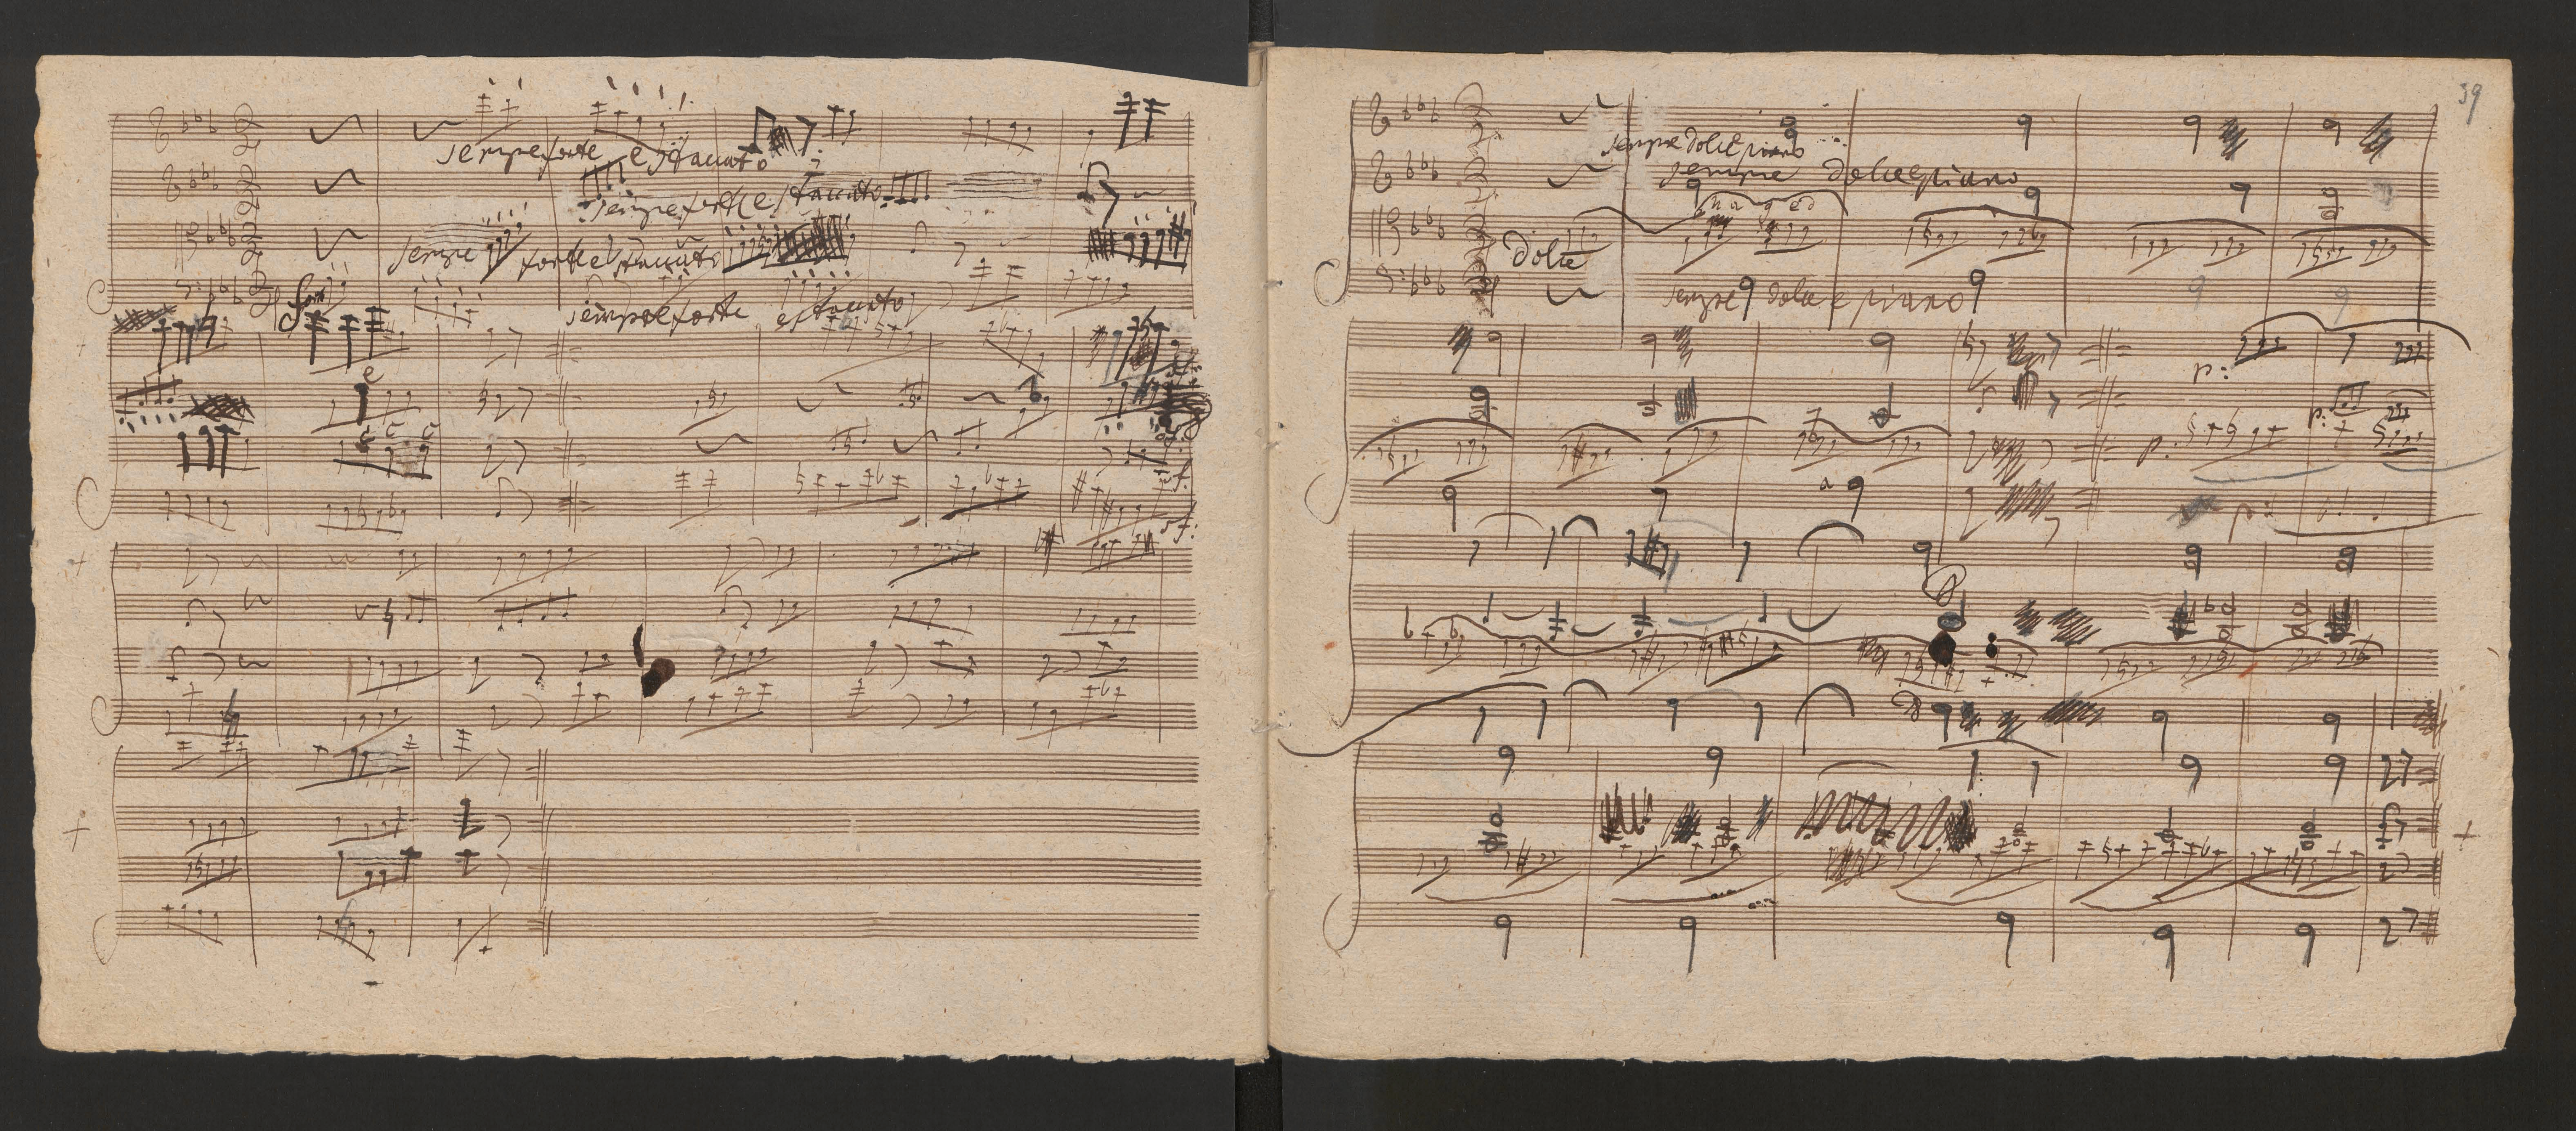 sempre forte e staccato
sempre forte e staccato
sempre forte e staccato
sempre forte e staccato
e
sf.
sf:
39
sempre dolce piano
sempre dolce e piano
dolce
sempre dolce e piano
p:
p:
p:
a